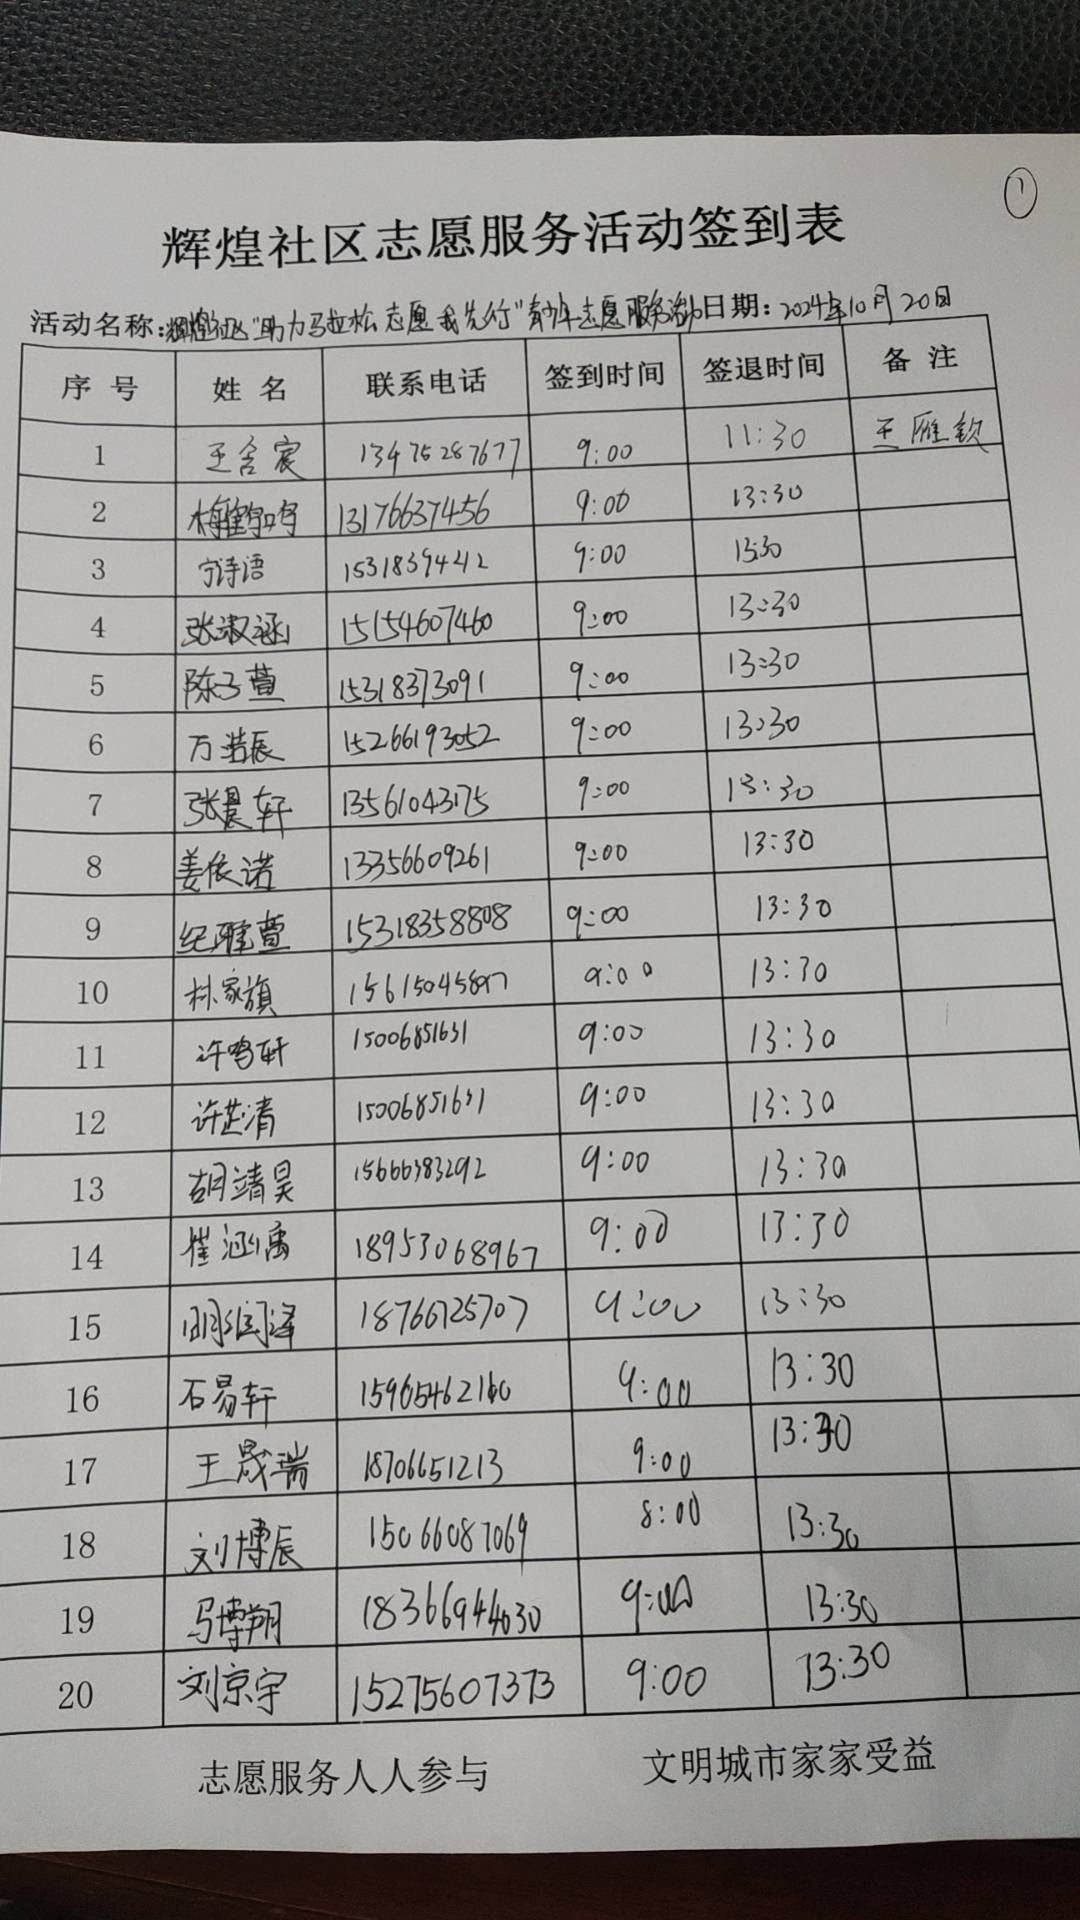 ①
辉煌社区志愿服务活动签到表
活动名称:辉煌社区"助力马拉松 志愿我先行"青少年志愿服务活动日期:2024年10月20日
序号 姓名 联系电话 签到时间 签退时间 备注
1 王含宸 13475287677 9:00 11:30 王雁钦
2 梅鹤鸣 13176637456 9:00 13:30
3 宁诗语 15318394412 9:00 1530
4 张淑涵 15154607460 9:00 13:30
5 陈子萱 15318373091 9:00 13:30
6 万浩辰 15266193052 9:00 13:30
7 张晨轩 13561043175 9:00 13:30
8 姜依诺 13356609261 9:00 13:30
9 纪雅萱 15318358808 9:00 13:30
10 林家旗 15615045897 9:00 13:30
11 许鸣轩 15006851631 9:00 13:30
12 许芷清 15006851631 9:00 13:30
13 胡靖昊 15666383292 9:00 13:30
14 崔涵禹 18953068967 9:00 13:30
15 明润泽 18766725707 9:00 13:30
16 石易轩 15965462160 9:00 13:30
17 王晟瑞 18706651213 9:00 13:30
18 刘博辰 15066087069 8:00 13:30
19 马博翔 18366944030 9:00 13:30
20 刘京宇 15275607373 9:00 13:30
志愿服务人人参与 文明城市家家受益